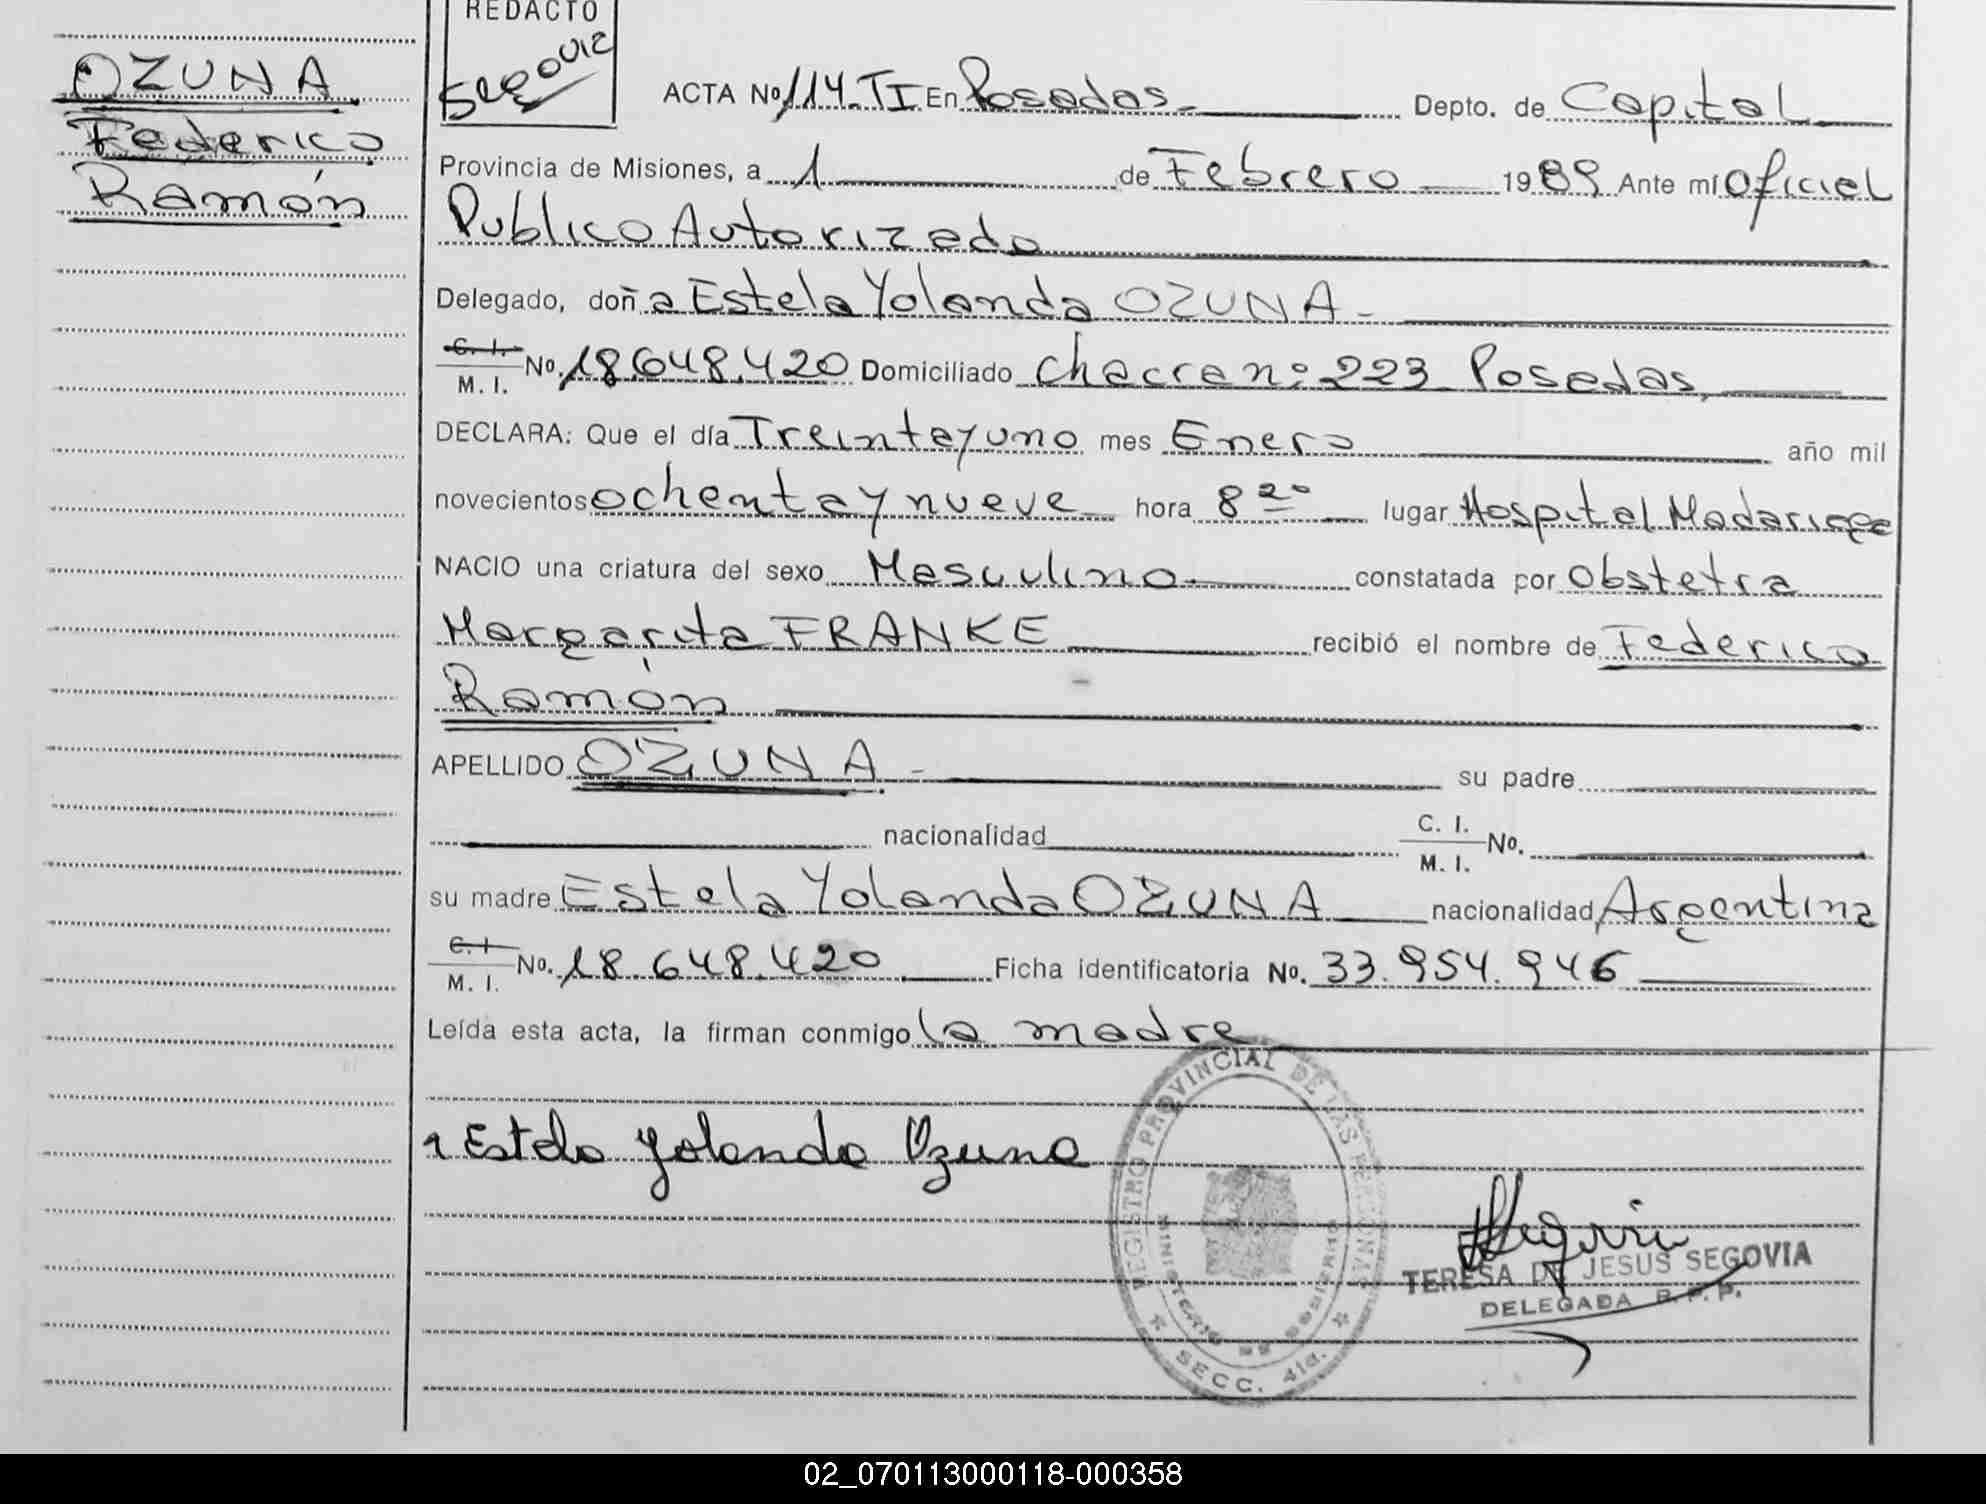 OZUNA
Federico
Ramón
REDACTO
Segovia
ACTA Nº 114-TI En Posadas Depto. de Capital
Provincia de Misiones, a 1 de Febrero 1989 Ante mí Oficial
Publico Autorizado
Delegado, doña Estela Yolanda OZUNA -
C. I. M. I. No. 18.648.420 Domiciliado Chacra nº 223 Posadas
DECLARA: Que el día Treinta y uno mes Enero año mil
novecientos ochenta y nueve hora 8 20 lugar Hospital Madariaga
NACIO una criatura del sexo Masculino constatada por Obstetra
Margarita FRANKE recibió el nombre de Federico
Ramón
APELLIDO OZUNA - su padre
nacionalidad C. I. M. I. No.
su madre Estela Yolanda OZUNA nacionalidad Argentina
C. I. M. I. No. 18.648.420 Ficha identificatoria No. 33.954.946
Leída esta acta, la firman conmigo la madre
Estela Yolanda Ozuna
REGISTRO PROVINCIAL DE LAS PERSONAS
MINISTERIO DE GOBIERNO
SECC. 4ta.
TERESA DE JESUS SEGOVIA
DELEGADA R. P. P.
02_070113000118-000358